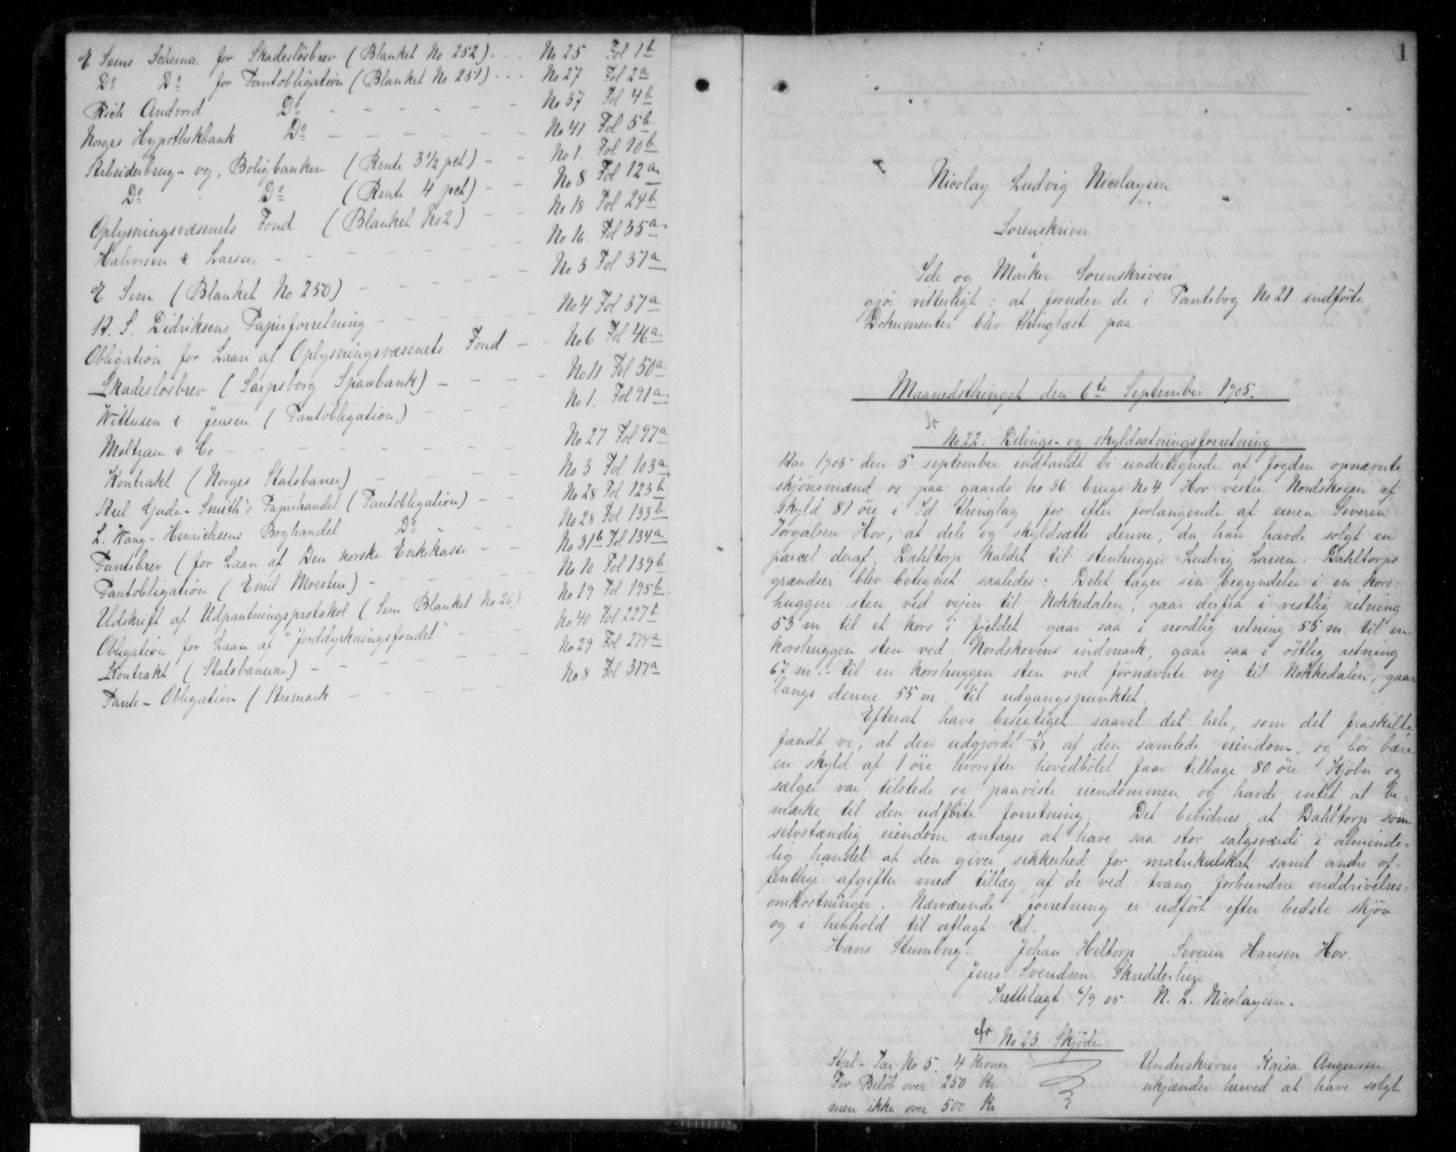 E Sems Schema for Skadesløsbrev (Blanket No 252) - - - No 25 Fol 1b
Do Do for Pantobligation (Blanket No 251) - - - No 27 Fol 2a
Rich Andvord Do - - - - - - No 37 Fol 4b
Norges Hypothekbank Do - - - - - - No 41 Fol 5b
Arbeiderbrug- og Boligbanken (Rente 3 1/2 pct) - - No 1. Fol 10b
Do Do (Rente 4 pct) - - No 8 Fol 12a
Oplysningsvæsenets Fond (Blanket No 2) - - No 18 Fol 24b
Halvorsen & Larsen - - - - - - No 16. Fol 35a
E Sem (Blanket No 250) - - - - - - No 3 Fol 37a
A. S. Didriksens Papirforretning - - - - - No 4 Fol 37a
Obligation for Laan af Oplysningsvæsenets Fond - - No 6 Fol 46a
Skadesløsbrev (Sarpsborg Sparebank) - - - - No 11 Fol 50a
Wittusen & Jensen (Pantobligation) - - - - No 1. Fol 91a
Moltzau & Co - - - - - - - No 27 Fol 97a
Kontrakt (Norges Statsbaner) - - - - - No 3 Fol 103a
Gude - Smith's Papirhandel (Pantobligation) - - No 28 Fol 123b
L. Wang - Henrichsens Boghandel Do - - No 28 Fol 133b
Pantebrev (for Laan af Den norske Enkekasse - - No 31b Fol 134a
Pantobligation (Emil Moestue) - - - - - No 10 Fol 139b
Udskrift af Udpantningsprotokol (Sem Blanket No 26) No 19 Fol 195b
Obligation for Laan af "Jorddyrkningsfondet" - - - No 40 Fol 227b
Kontrakt (Statsbanerne) - - - - - - No 29 Fol 274a
Pante - Obligation (Aremark - - - - - No 8 Fol 317a
1
Nicolay Ludvig Nicolaysen
Sorenskriver
i Ide og Marker Sorenskriveri
gjør vitterligt: at foruden de i Pantebog No 21 indførte
Dokumenter blev thinglæst paa
Maanedsthinget den 6te September 1905.
No 22. Delings- og skyldsætningsforretning
Aar 1905 den 5 september indfandt vi undertegnede af fogden opnævnte
skjønsmænd os paa gaards no 36 brugs No 4 Hov vestre Nordskogen af
Skyld 81 øre i Id thinglag for efter forlangende af eieren Severin
Torgalsen Hov, at dele og skyldsætte denne, da han havde solgt en
parcel deraf Dahltorp kaldet til stenhugger Ludvig Larsen. Dahltorps
grændser blev betegnet saaledes: Delet tager sin begyndelse i en kors-
huggen sten ved vejen til Nokkedalen, gaar derfra i vestlig retning
53 m til et kors i fjeldet gaar saa i nordlig retning 55 m. til en
korshuggen sten ved Nordskovens indmark, gaar saa i østlig retning
67 m. til en korshuggen sten ved førnævnte vej til Nokkedalen, gaar
langs denne 55 m. til udgangspunktet.
Efterat have besigtiget saavel det hele, som det fraskilte,
fandt vi, at den udgjorde 1/81 af den samlede eiendom, og bør bære
en skyld af 1 øre hvorefter hovedbølet faar tilbage 80 øre. Kjøber og
sælger var tilstede og paaviste eiendommen og havde intet at be-
mærke til den udførte forretning. Det bevidnes at Dahltorp som
selvstændig eiendom antages at have saa stor salgsværdi i alminde-
lig handel at den giver sikkerhed for matrikulskat samt andre of-
fentlige afgifter med tillæg af de ved tvang forbundne inddrivelses-
omkostninger. Nærværende forretning er udført efter bedste skjøn
og i henhold til aflagt Ed.
Hans Stumberg. Johan Heltorp Severin Hansen Hov
Jens Svendsen Skredderhuge
Irettelagt 6/9 05. N. L. Nicolaysen.
No 23. Skjøde
Stpl - Pap No 5. 4 Kroner
For Beløb over 250 Kr
men ikke over 500 Kr
Underskrevne Kaisa Augensen
erkjender herved at have solgt